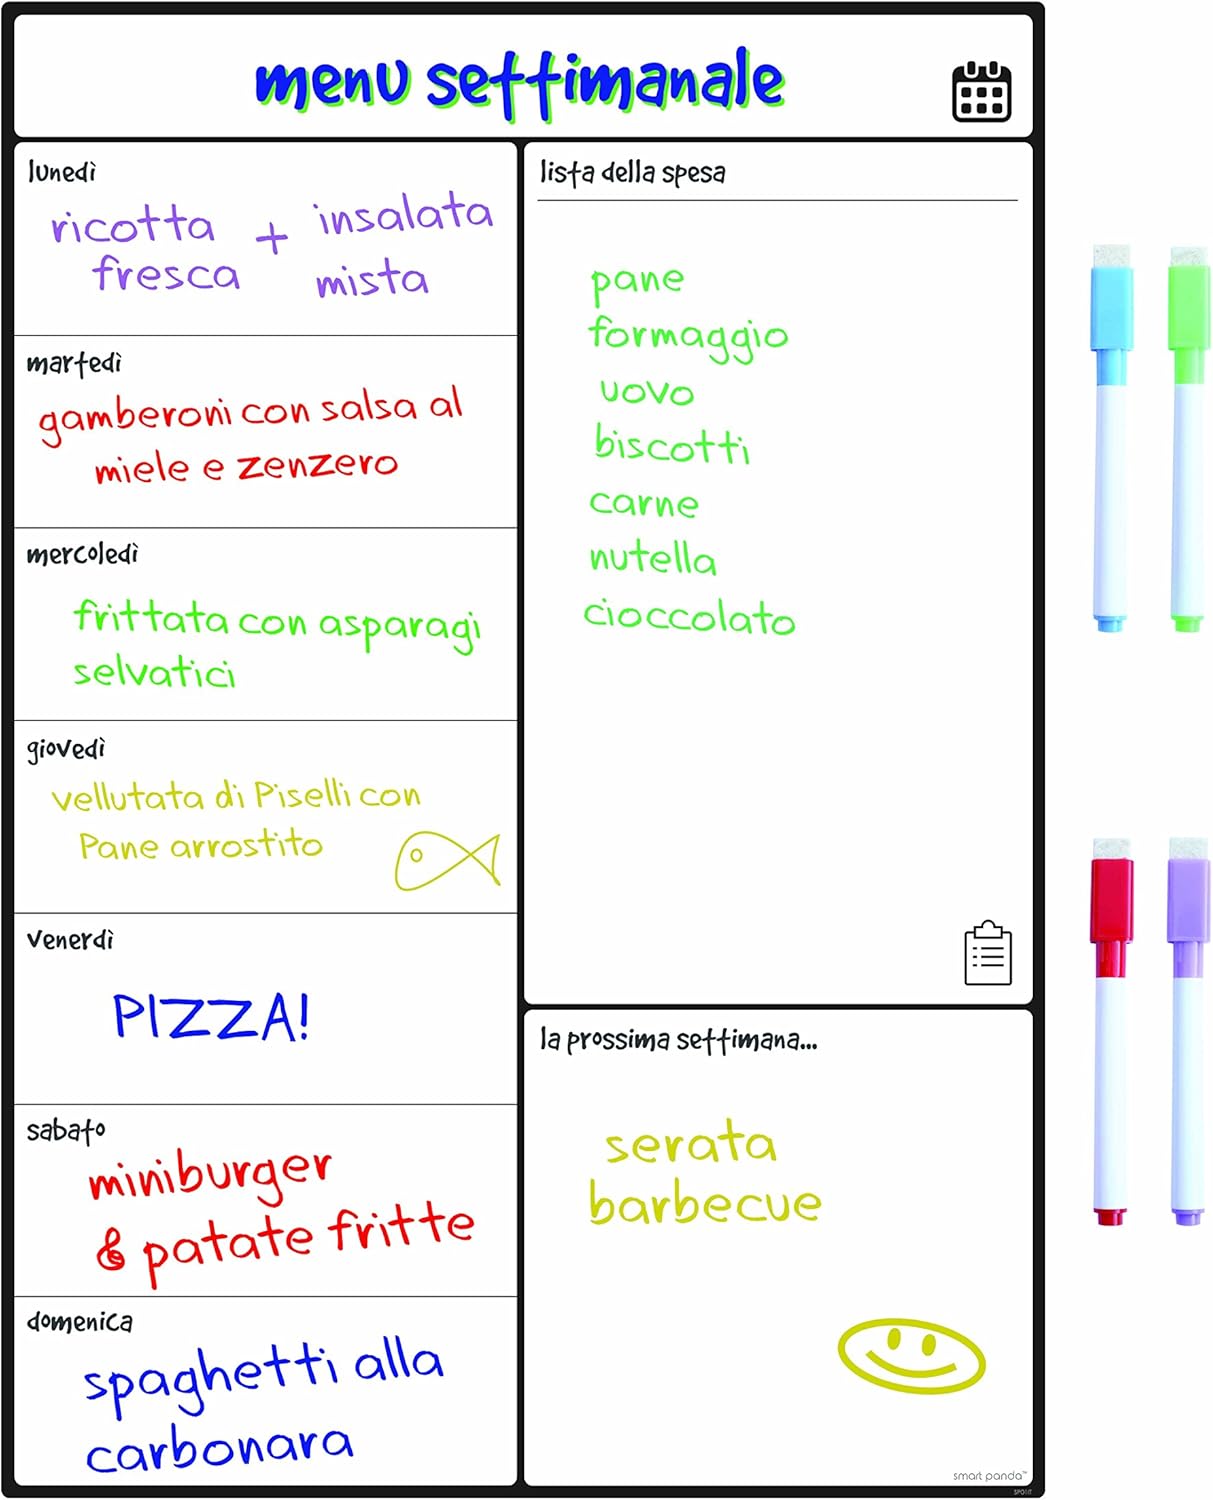 menu settimanale
lunedì
ricotta + insalata
fresca mista
martedì
gamberoni con salsa al
miele e zenzero
mercoledì
frittata con asparagi
selvatici
giovedì
vellutata di Piselli con
Pane arrostito
venerdì
PIZZA!
sabato
miniburger
& patate fritte
domenica
spaghetti alla
carbonara
lista della spesa
pane
formaggio
uovo
biscotti
carne
nutella
cioccolato
la prossima settimana...
serata
barbecue
smart panda™